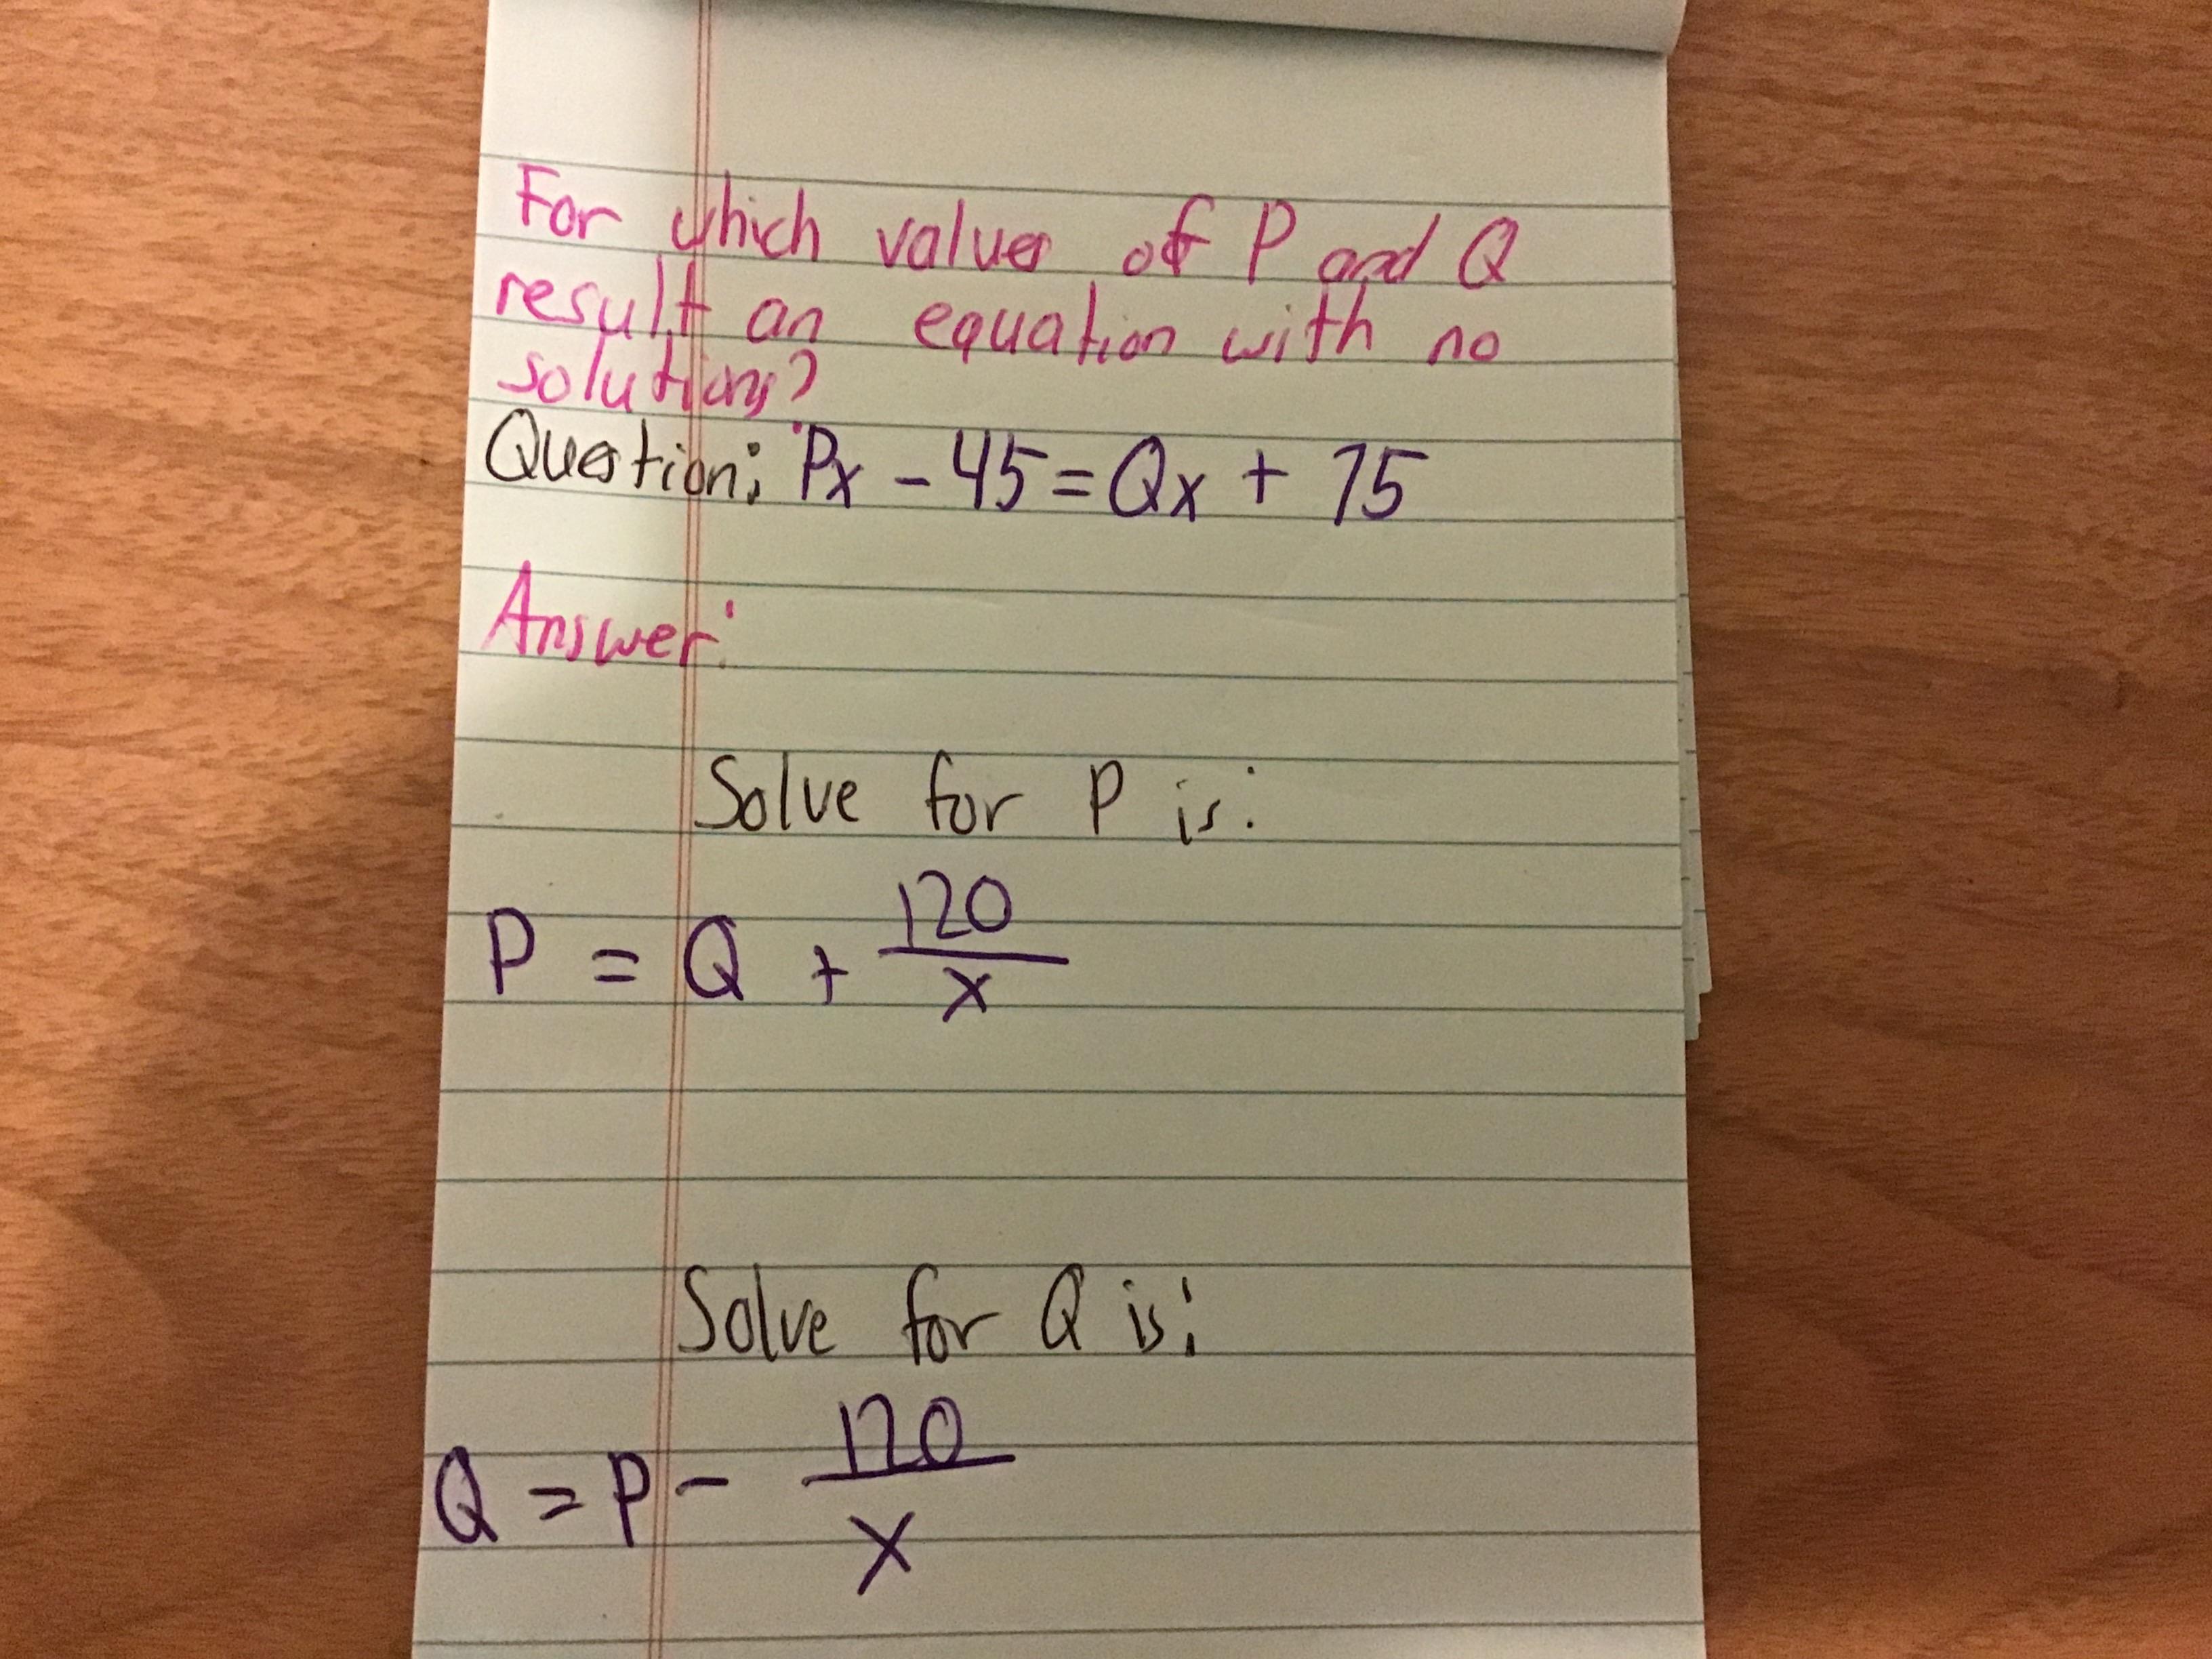 For which values of P and Q
result an equation with no
solutions?
Question: Px - 45 = Qx + 75
Answer:
Solve for P is:
P = Q + 120/x
Solve for Q is:
Q = P - 120/x